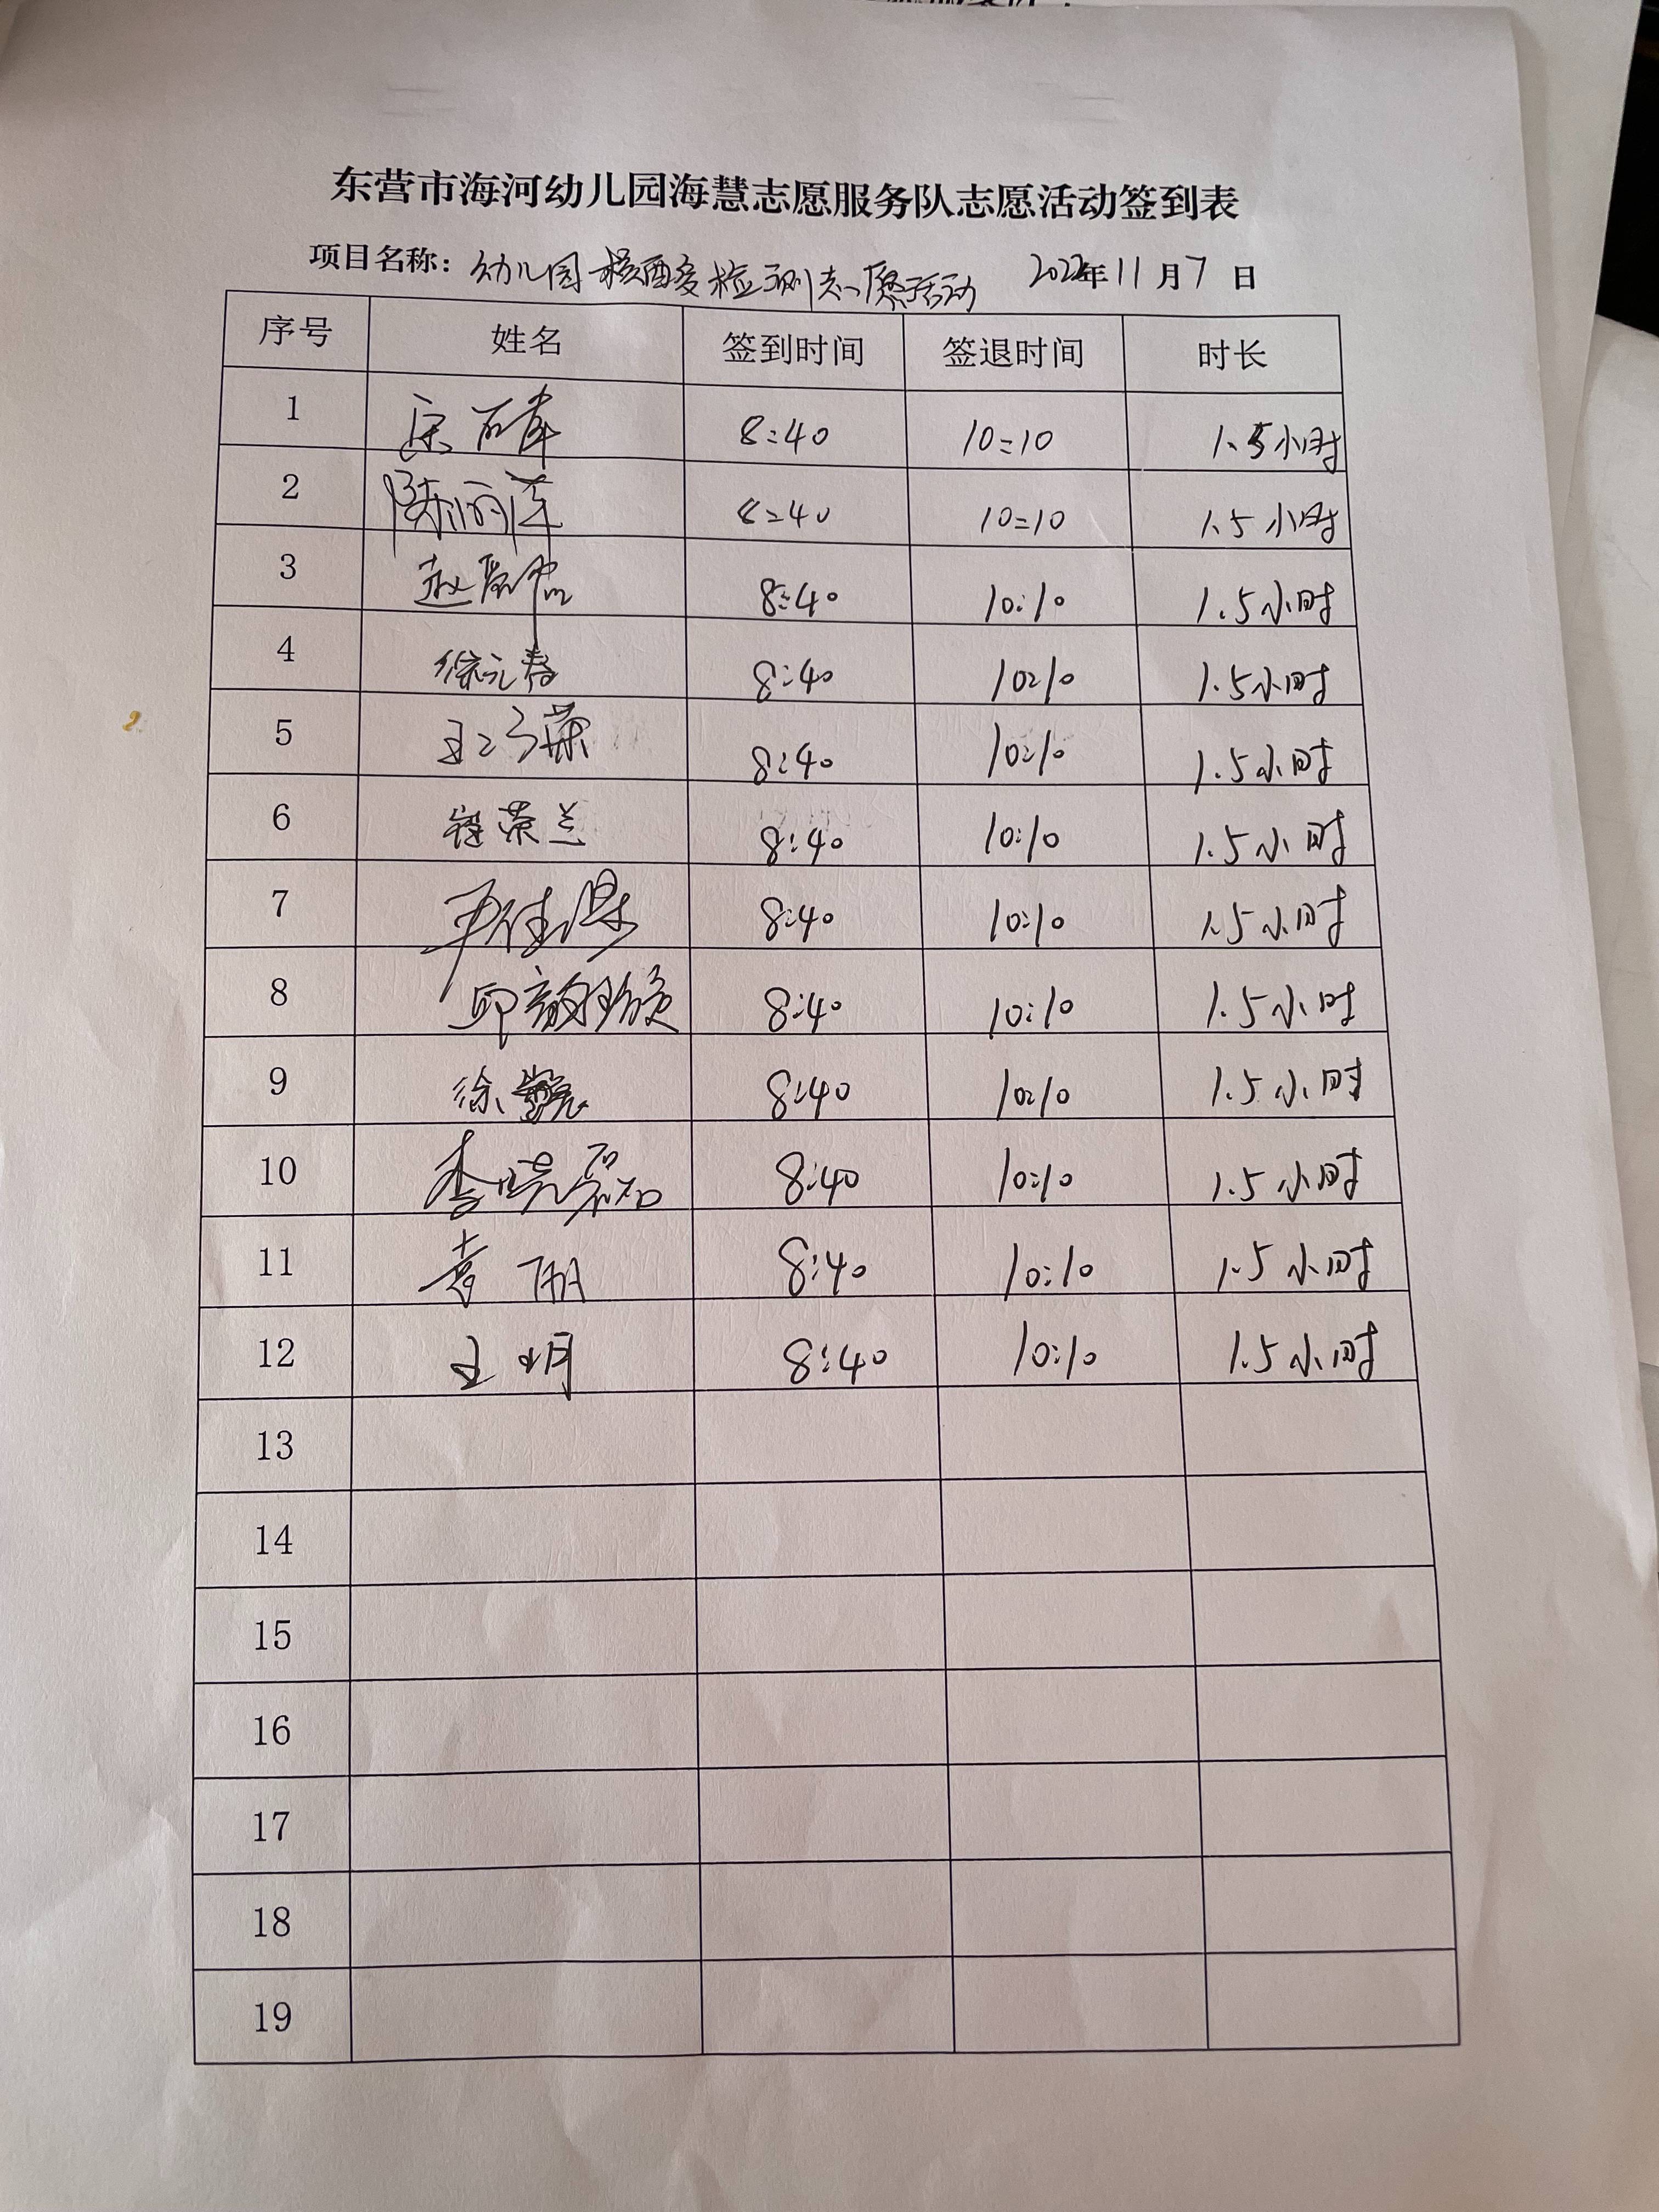 东营市海河幼儿园海慧志愿服务队志愿活动签到表
项目名称：幼儿园核酸检测志愿活动 2022年11月7日
序号 姓名 签到时间 签退时间 时长
1 8:40 10:10 1.5小时
2 8:40 10:10 1.5小时
3 8:40 10:10 1.5小时
4 徐元春 8:40 10:10 1.5小时
5 8:40 10:10 1.5小时
6 8:40 10:10 1.5小时
7 8:40 10:10 1.5小时
8 8:40 10:10 1.5小时
9 徐 8:40 10:10 1.5小时
10 李晓磊 8:40 10:10 1.5小时
11 袁 8:40 10:10 1.5小时
12 王明 8:40 10:10 1.5小时
13
14
15
16
17
18
19